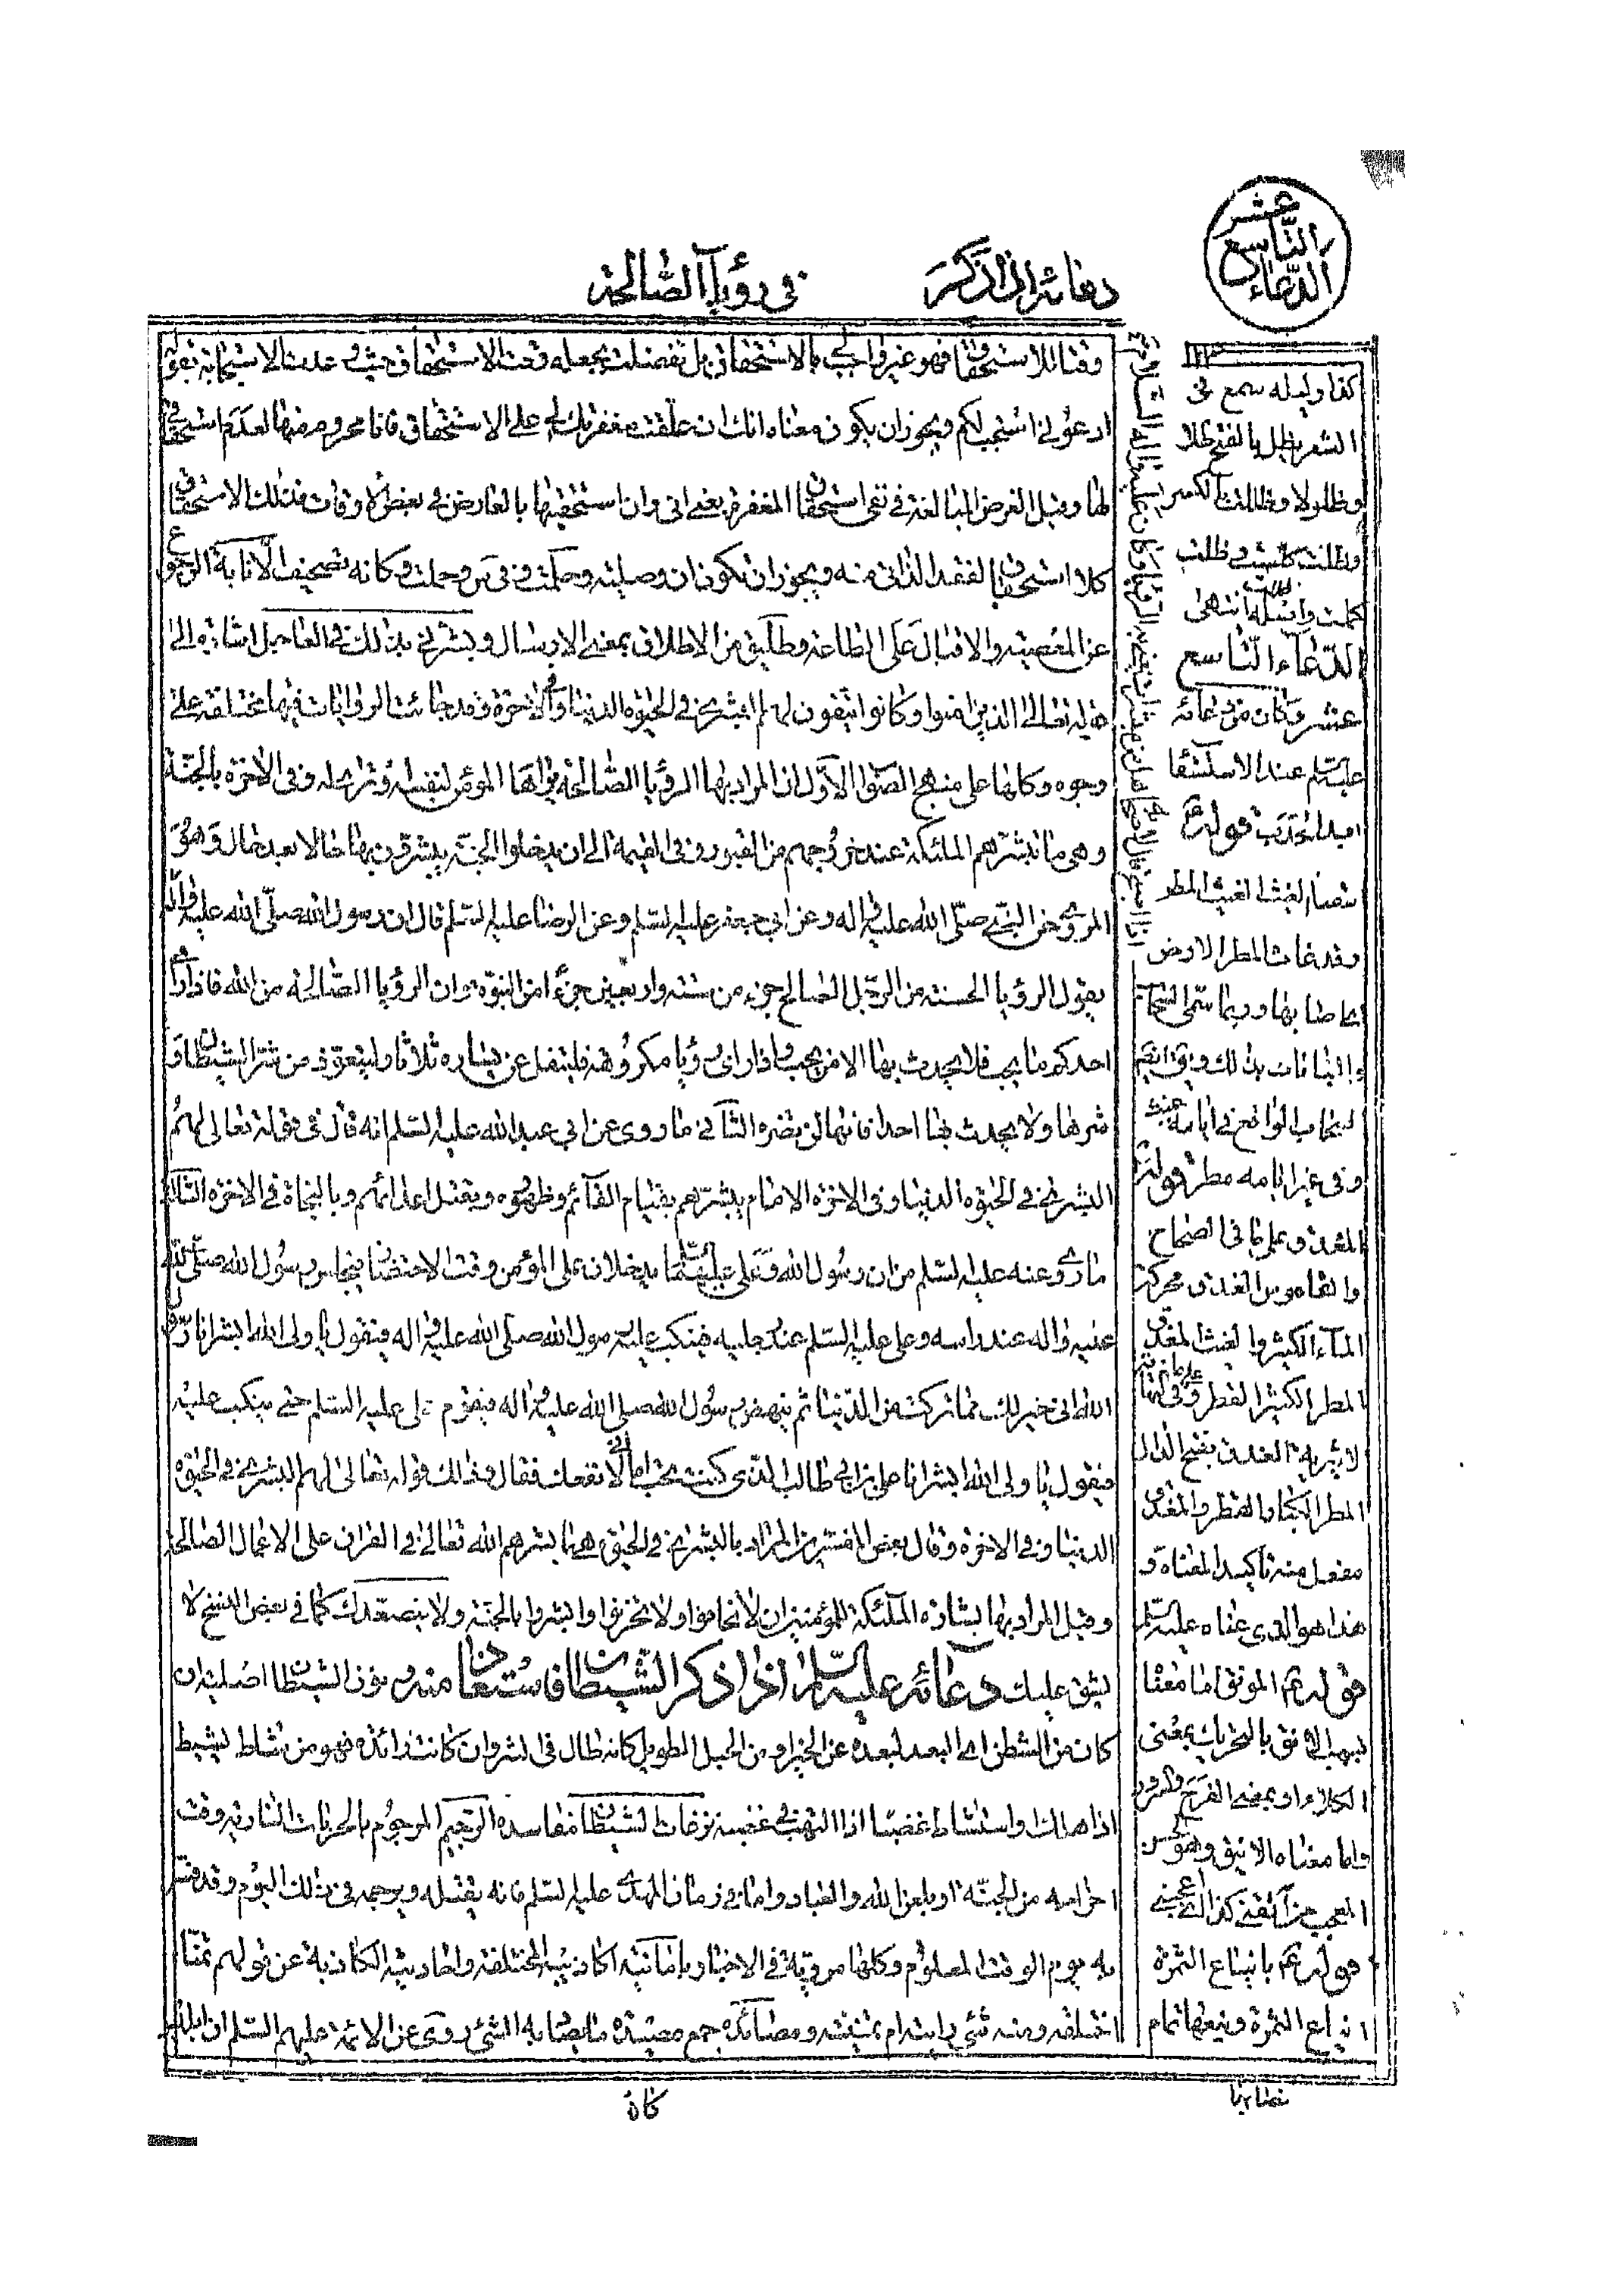 عشر
التاسع
الدعاء
دعائه اذا ذكر
في رؤيا الصالحة
وقتا للاستحقاق فهو غير واجب بالاستحقاق بل تفضلت بجعله وقت الاستحقاق حيث وعدت الاستجابة بقولك
ادعوني استجب لكم ويجوز ان يكون معناه انك ان علقت مغفرتك لي على الاستحقاق فانا محروم منها لعدم استحقاقي
لها وقيل الغرض المبالغة في نفي استحقاق المغفرة يعني اني وان استحقيتها بالعارض في بعض الاوقات فتلك الاستحقاق
كلا استحقاق لفقد الذاتي منه ويجوز ان تكون ان وصلية وحملت وفي س وحلت وكانه تصحيف الانابة الرجوع
عن المعصية والاقبال على الطاعة وطليق من الاطلاق بمعنى الارسال وبشرني بذلك في العاجل اشارة الى
قوله تعالى الذين امنوا وكانوا يتقون لهم البشرى في الحيوة الدنيا وفي الاخرة وقد جائت الروايات فيها مختلفة على
وجوه وكلها على منهج الصواب الاول ان المراد بها الرؤيا الصالحة يراها المؤمن لنفسه او تراى له وفي الاخرة بالجنة
وهي ما تبشرهم الملئكة عند خروجهم من القبور وفي القيمة الى ان يدخلوا الجنة يبشرون بها حالا بعد حال وهو
المروي عن النبي صلى الله عليه واله وعن ابي جعفر عليه السلم وعن الرضا عليه السلم قال ان رسول الله صلى الله عليه واله
يقول الرؤيا الحسنة من الرجل الصالح جزء من ستة واربعين جزءا من النبوة وان الرؤيا الصالحة من الله فاذا راى
احدكم ما يحب فلا يحدث بها الا من يحب واذا راى رؤيا مكروهة فليتفل عن يساره ثلاثا وليتعوذ من شر الشيطان و
شرها ولا يحدث بها احدا فانها لن تضره الثاني ما روى عن ابي عبد الله عليه السلم انه قال في قوله تعالى لهم
البشرى في الحيوة الدنيا وفي الاخرة الامام يبشرهم بقيام القائم وظهوره وبقتل اعدائهم وبالنجاة في الاخرة الثالث
ما روي عنه عليه السلم من ان رسول الله وعلى عليهما السلم يدخلان على المؤمن وقت الاحتضار فيجلس رسول الله صلى الله
عليه واله عند راسه وعلى عليه السلم عند رجليه فينكب عليه رسول الله صلى الله عليه واله فيقول يا ولي الله ابشر انا رسول
الله اني خير لك مما تركت من الدنيا ثم ينهض رسول الله صلى الله عليه واله فيقوم على عليه السلم حتى ينكب عليه
فيقول يا ولي الله ابشر انا على بن ابي طالب الذي كنت تحب اما اني لانفعك فقال وذلك قوله تعالى لهم البشرى في الحيوة
الدنيا وفي الاخرة وقال بعض المفسرين المراد بالبشرى في الحيوة هي ما بشرهم الله تعالى في القران على الاعمال الصالحة
وقيل المراد بها بشارة الملئكة للمؤمنين ان لا تخافوا ولا تحزنوا وابشروا بالجنة ولا يتصعدك كما في بعض النسخ لا
يشق عليك دعائه عليه السلم اذا ذكر الشيطان فاستعاذ منه نون الشيطان اصلية ان
كان من الشطن اي البعد لبعده عن الخير او من الحبل الطويل كانه طال في الشر وان كانت زائدة فهو من شاط يشيط
اذا هلك واستشاط غضبا اذا التهب في غضبه نزغات الشيطان مفاسده الرجيم المرجوم بالحربات النارية وقت
اخراجه من الجنة او بلعن الله والعباد واما في زمان المهدي عليه السلم فانه يقتله ويرجمه في ذلك اليوم وقد فسر
به يوم الوقت المعلوم وكلها مروية في الاخبار وامانيه اكاذيبه المختلقة واحاديثه الكاذبة عن قولهم تمنا
اختلقه ومنه تمني ومصائده جمع مصيدة ما يصاد به الشئ روى عن الائمة عليهم السلم ان ابليس
كان
١١٣
كذا وليله سمع في
الشعر يظل بالفتح ظلا
وظلولا وظللت بالكسر
وظلت كلست وظلت
كملت واصله ظللت انتهى
الدعاء التاسع
عشر وكان من دعائه
عليه السلم عند الاستسقاء
بعد الجدب قوله ع
الغيث المطر
وقد غاث المطر الارض
اصابها وربما سمى السحاب
والنبات بذلك
السحاب الواقع في ابانه غيث
وفي غير ابانه مطر قوله
المغدق في الصحاح
والقاموس الغدق محركة
الماء الكثير والغيث المغدق
المطر الكثير القطر وفي نهاية
لاثيرية الغدق بفتح الدال
المطر الكبار القطر والمغدق
مفعل منه تاكيد لمعناه و
هذا هو الذي عناه عليه السلم
قوله ع المونق اما معناه
الانق بالتحريك بمعنى
الكلاء او بمعنى الفرح والسرور
واما معناه الانيق وهو الحسن
المعجب من آنقني كذا اي اعجبني
قوله ع بايناع الثمرة
ايناع الثمرة وينعها تمام
نضجها